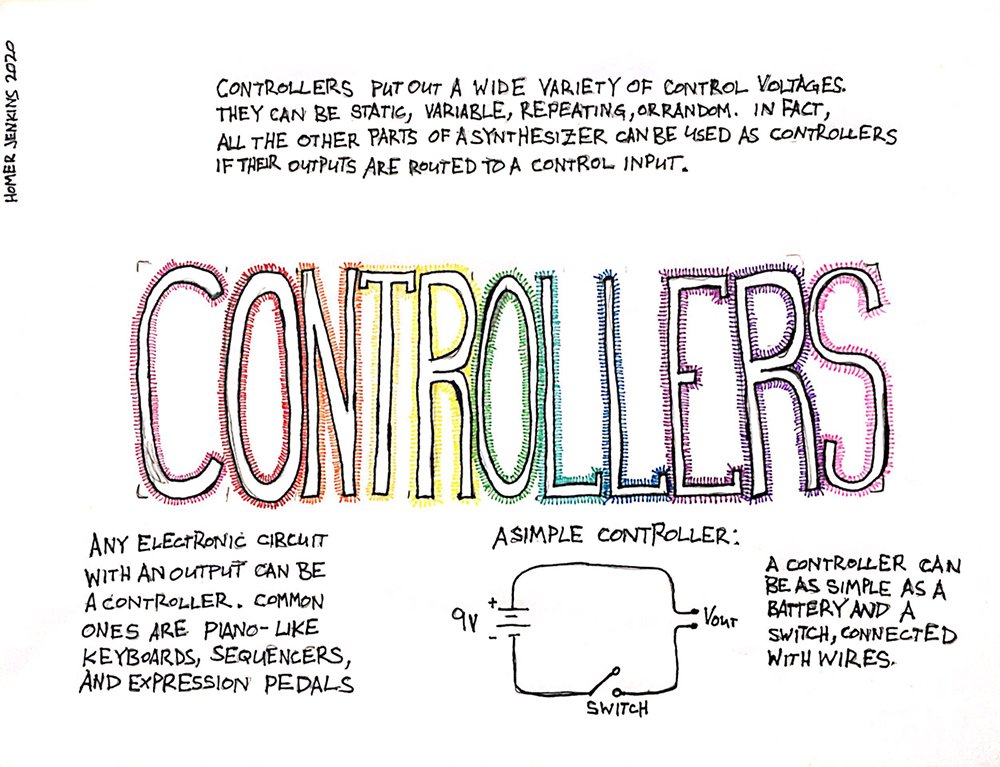 HOMER JENKINS 2020
CONTROLLERS PUT OUT A WIDE VARIETY OF CONTROL VOLTAGES.
THEY CAN BE STATIC, VARIABLE, REPEATING, OR RANDOM. IN FACT,
ALL THE OTHER PARTS OF A SYNTHESIZER CAN BE USED AS CONTROLLERS
IF THEIR OUTPUTS ARE ROUTED TO A CONTROL INPUT.
CONTROLLERS
ANY ELECTRONIC CIRCUIT
WITH AN OUTPUT CAN BE
A CONTROLLER. COMMON
ONES ARE PIANO-LIKE
KEYBOARDS, SEQUENCERS,
AND EXPRESSION PEDALS
A SIMPLE CONTROLLER:
+
9V
-
Vout
SWITCH
A CONTROLLER CAN
BE AS SIMPLE AS A
BATTERY AND A
SWITCH, CONNECTED
WITH WIRES.